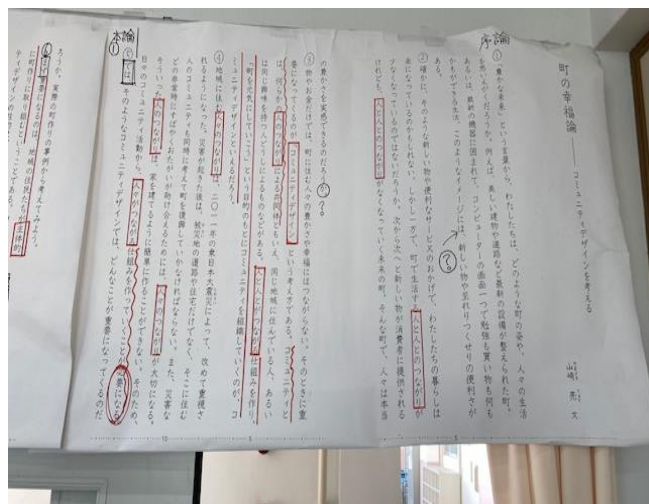 町の幸福論――コミュニティデザインを考える
山崎 亮 文
序論
①「豊かな未来」という言葉から、わたしたちは、どのような町の姿や、人々の生活
を思いえがくだろうか。例えば、美しい建物や道路など最新の設備が整えられた町。
あるいは、最新の機器に囲まれて、コンピューターの画面一つで勉強も買い物も何も
かもができる生活。このようなイメージには、新しい物や至れりつくせりの便利さが
?
②確かに、そのような新しい物や便利なサービスのおかげで、わたしたちの暮らしは
楽になっているのかもしれない。しかし一方で、町で生活する人と人とのつながりが
少なくなっているのではないだろうか。次から次へと新しい物が消費者に提供される
けれども、人と人とのつながりがなくなっていく未来の町。そんな町で、人々は本当
の豊かさを実感できるのだろうか。
?
③物やお金だけでは、町に住む人々の豊かさや幸福にはつながらない。そのときに重
要になってくるのが、コミュニティデザインという考え方である。コミュニティと
は、何らかのつながりによる共同体ともいえ、同じ地域に住んでいる人、あるい
は同じ興味を持つ人どうしによるものなどがある。人と人とがつながる仕組みを作り、
「町を元気にしていこう」という目的のもとにコミュニティを組織していくのが、コ
ミュニティデザインといえるだろう。
④地域に住む人々のつながりは、二〇一一年の東日本大震災によって、改めて重視さ
れるようになった。災害が起きた後は、被災地の道路や住宅だけでなく、そこに住む
人のコミュニティも同時に考えて町を復興していかなければならない。また、災害な
どの非常時にすばやくおたがいが助け合えるためには、人々のつながりが大切になる。
そういった人のつながりは、家を建てるように簡単に作ることができない。そのため、
日々のコミュニティ活動から、人と人がつながる仕組みを作っていくことが必要になる。
本論①
⑤では、そのようなコミュニティデザインでは、どんなことが重要になってくるのだ
ろうか。実際の町作りの事例から考えてみよう。
重要になるのは、地域の住民たちが主体的
に町作りに取り組むということである。
ティデザインの